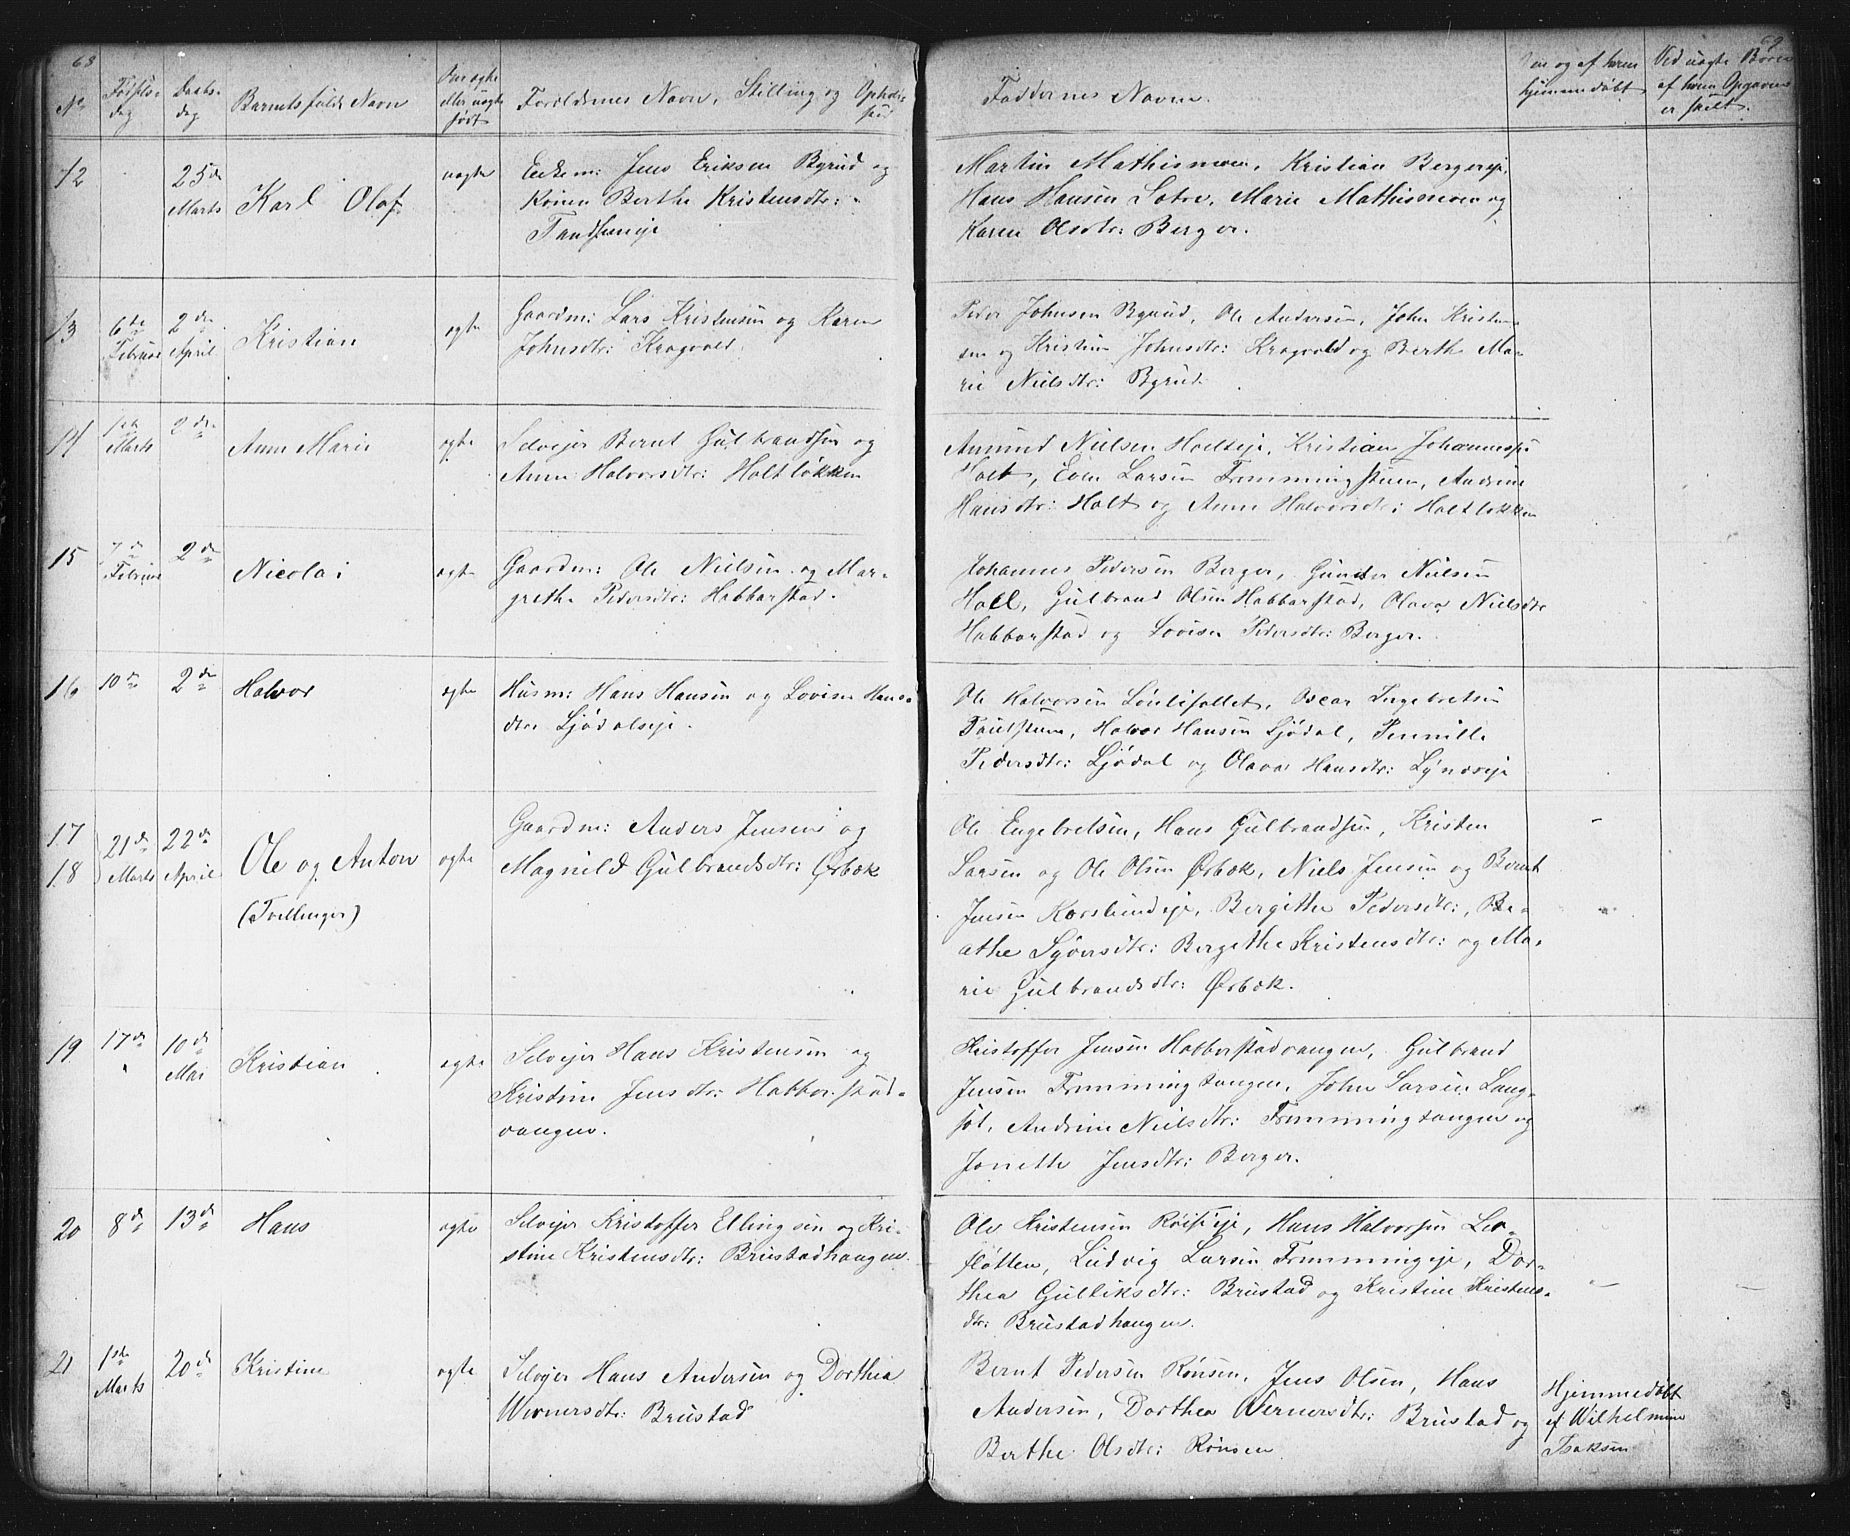 68
No
Fødsels-
dag
Daabs-
dag
Barnets fulde Navn
Om ægte
eller uægte
født
Forældrenes Navn, Stilling og Opholds-
sted
12
25de
Marts
Karl Olaf
uægte
Enkem: Jens Eriksen Byrud og
Konen Berthe Kristensdtr:
13
6te
Februar
2den
April
Kristian
ægte
Gaardm: Lars Kristensen og Karen
Johnsdtr: Kragvold
14
1ste
Marts
2den
Anne Marie
ægte
Selvejer Bernt Gulbrandsen og
Anne Halvorsdtr: Holtløkken
15
7de
Februar
2den
Nicolai
ægte
Gaardm: Ole Nielsen og Mar-
grethe Pedersdtr: Habbarstad.
16
10de
2den
Halvor
ægte
Husm: Hans Hansen og Lovise Hans-
dtr Ljødalseje.
17
18
21de
Marts
22de
April
Ole og Anton
(Tvillinger)
ægte
Gaardm: Anders Jensen og
Magnild Gulbrandsdtr: Ørbæk
19
17de
"
10de
Mai
Kristian
ægte
Selvejer Hans Kristensen og
Kristine Jensdtr: Habberstad-
vangen.
20
8de
13de
Hans
ægte
Selvejer Kristoffer Ellingsen og Kri-
stine Kristensdtr: Brustadhaugen.
21
1ste
Marts
20de
Kristine
ægte
Selvejer Hans Andersen og Dorthea
Wernersdtr: Brustad
69
Faddernes Navne.
Om og af hvem
hjemmedøbt
Ved uægte Børn
af hvem Opgaven
er skeet.
Martin Mathismoen, Kristian Bergereje,
Hans Hansen Marie Mathismoen og
Karen Olsdtr: Berger.
Peder Johnsen Byrud, Ole Andersen, John Kristen-
sen og Kristine Johnsdtr: Kragvold og Berthe Ma-
rie Nielsdtr: Byrud
Amund Nielsen Holteje, Kristian Johannessen
Holt, Even Larsen Fremmingstuen, Andrine
Hansdtr: Holt og Anne Halvorsdtr: Holtløkken
Johannes Pedersen Berger, Gunder Nielsen
Holl, Gulbrand Olsen Habbarstad, Olava Nielsdtr
Habbarstad og Lovise Pedersdtr: Berger.
Ole Halvorsen Oscar Ingebretsen
Halvor Hansen Ljødal, Pernille
Pedersdtr: Ljødal og Olava Hansdtr:
Ole Engebretsen, Hans Gulbrandsen, Kristen
Larsen og Ole Olsen Ørbæk, Niels Jensen og Bernt
Jensen Korslundeje, Bergithe Pedersdtr:, Be-
athe Bergithe Kristensdtr: og Ma-
rie Gulbrandsdtr: Ørbæk.
Kristoffer Jensen Habberstadvangen, Gulbrand
Jensen Fremmingtangen, John Larsen Lang-
set, Andrine Nielsdtr: Fremmingtangen og
Janette Jensdtr: Berger.
Ole Kristensen Hans Halvorsen Ler-
fløtten, Ludvig Larsen Fremmingeje, Dor-
thea Gulliksdtr: Brustad og Kristine Kristens-
dtr: Brustadhaugen.
Bernt Pedersen Rønsen, Jens Olsen, Hans
Andersen, Dorthea Wernersdtr: Brustad og
Berthe Olsdtr: Rønsen
Hjemmedøbt
af Wilhelmine
Isaksen